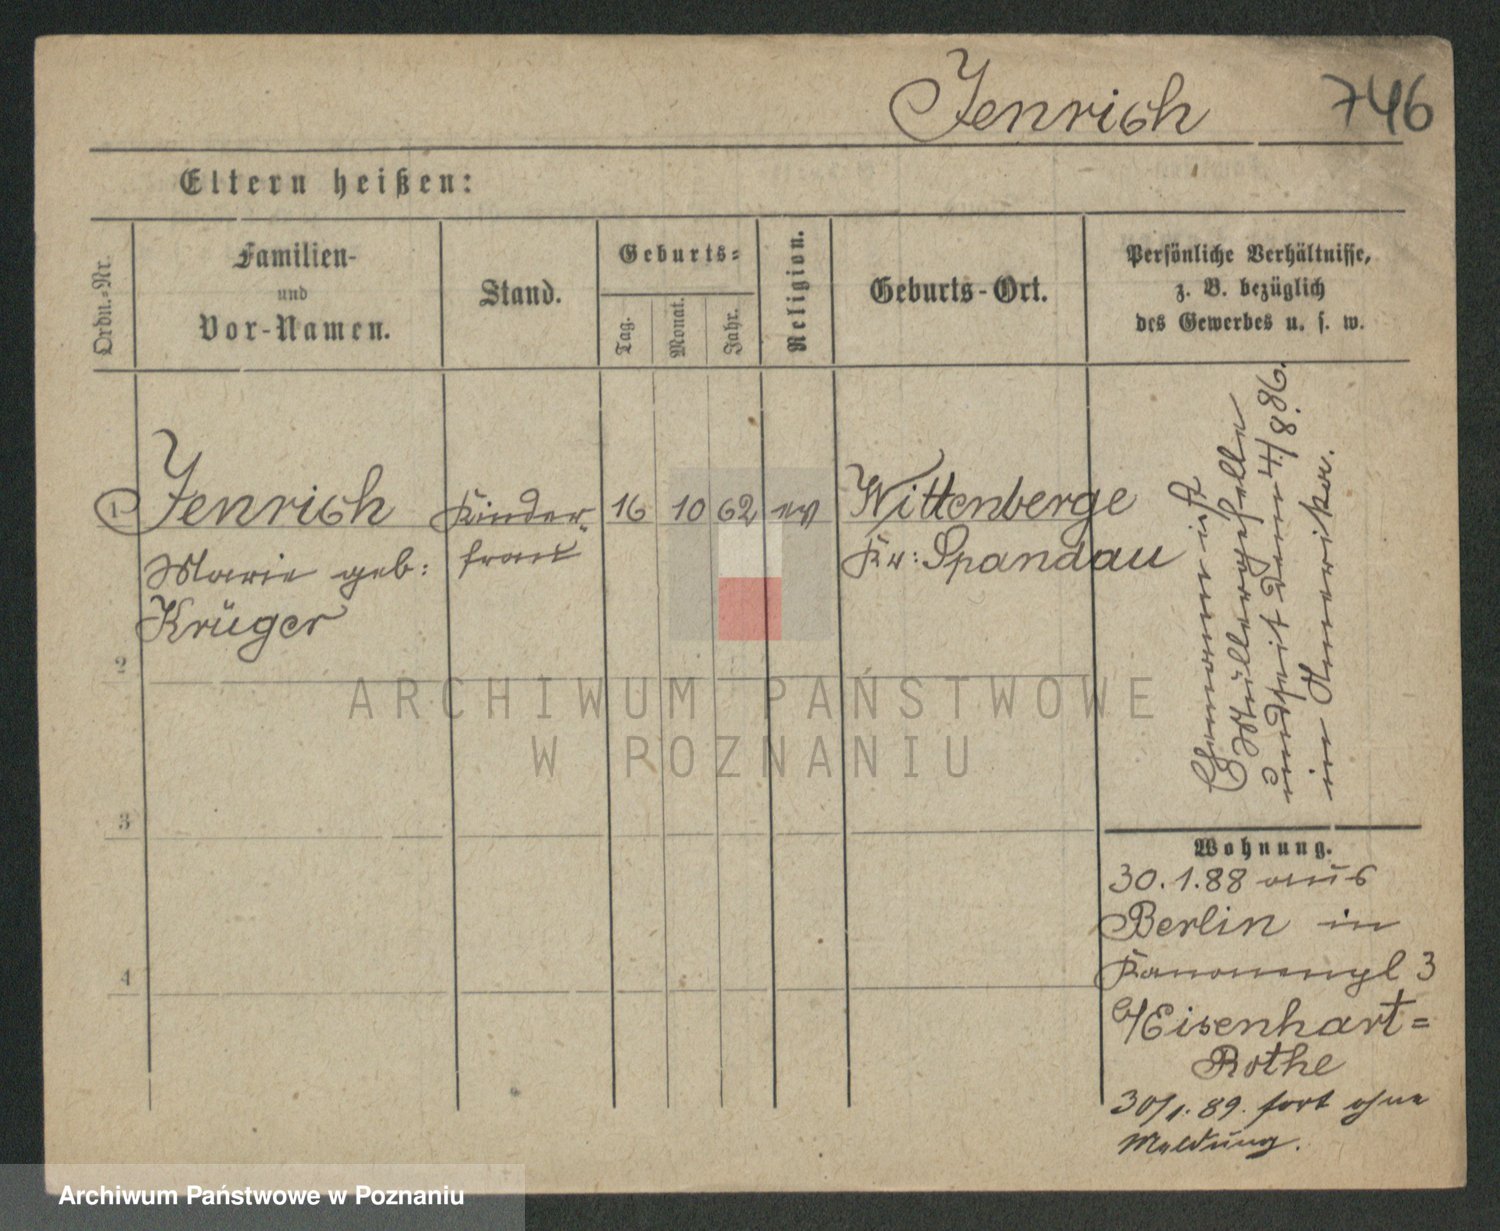 Jenrich 746
Eltern heißen:
Ordn.-Nr.
Familien-
und
Vor-Namen.
Stand.
Geburts-
Tag.
Monat.
Jahr.
Religion.
Geburts-Ort.
Persönliche Verhältnisse,
z. B. bezüglich
des Gewerbes u. s. w.
1 Jenrich Kinder- 16 10 62 ev Wittenberge
Marie geb: frau Kr: Spandau
Krüger
2
3
4
Ehemann ist
Müllergeselle
und seit dem 4/8.86.
in Amerika.
Wohnung.
30.1.88 aus
Berlin in
Kanonenpl 3
b/Eisenhart=
Rothe
30/1.89. fort ohne
Meldung.
ARCHIWUM PAŃSTWOWE
W POZNANIU
Archiwum Państwowe w Poznaniu